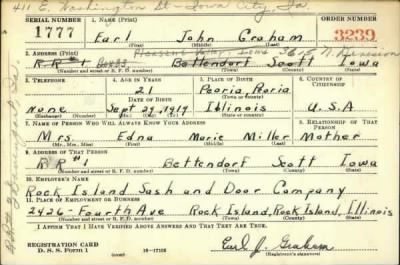 411 E. Washington St - Iowa City, Ia.
SERIAL NUMBER 1. NAME (Print) ORDER NUMBER
1777 Earl John Graham 3239
(First) (Middle) (Last)
2. ADDRESS (Print)
R R # 1 Box 33 Bettendorf Scott Iowa
(Number and street or R. F. D. number) (Town) (County) (State)
3. TELEPHONE 4. AGE IN YEARS 5. PLACE OF BIRTH 6. COUNTRY OF CITIZENSHIP
21 Peoria, Peoria
DATE OF BIRTH (Town or county)
none Sept 29, 1919 Illinois U.S.A
(Exchange) (Number) (Mo.) (Day) (Yr.) (State or country)
7. NAME OF PERSON WHO WILL ALWAYS KNOW YOUR ADDRESS 8. RELATIONSHIP OF THAT PERSON
Mrs. Edna Marie Miller Mother
(Mr., Mrs., Miss) (First) (Middle) (Last)
9. ADDRESS OF THAT PERSON
R R # 1 Bettendorf Scott Iowa
(Number and street or R. F. D. number) (Town) (County) (State)
10. EMPLOYER'S NAME
Rock Island Sash and Door Company
11. PLACE OF EMPLOYMENT OR BUSINESS
2426- Fourth Ave Rock Island, Rock Island, Illinois
(Number and street or R. F. D. number) (Town) (County) (State)
I AFFIRM THAT I HAVE VERIFIED ABOVE ANSWERS AND THAT THEY ARE TRUE.
REGISTRATION CARD
D. S. S. Form 1 16-17105 Earl J. Graham
(Registrant's signature)